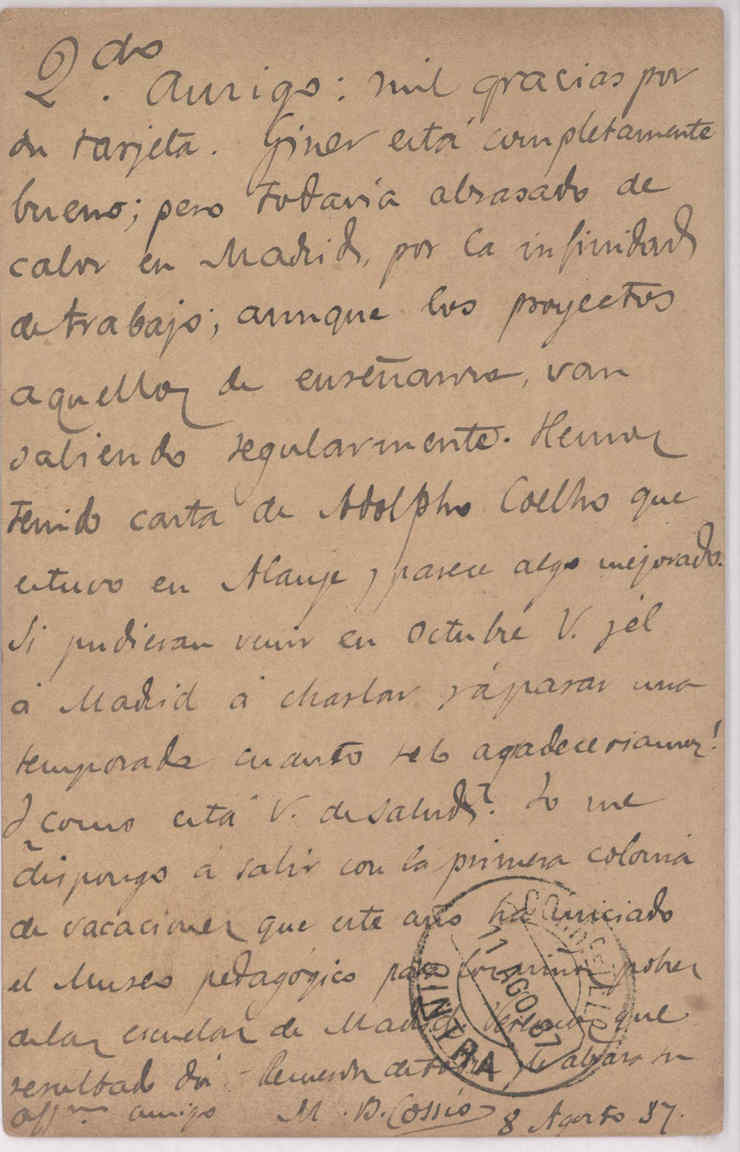 Qdo. amigo: mil gracias por
su tarjeta. Giner está completamente
bueno; pero todavía abrasado de
calor en Madrid, por la infinidad
de trabajo; aunque los proyectos
aquellos de enseñanza, van
saliendo regularmente. Hemos
tenido carta de Adolpho Coelho que
estuvo en Alanje y parece algo mejorado.
Si pudieran venir en Octubre V. y él
á Madrid á charlar y á pasar una
temporada cuanto se lo agadeceriamos!
Y como está V. de salud? Yo me
dispongo á salir con la primera colonia
de vacaciones que este año ha iniciado
el Museo pedagógico para los niños pobres
de las escuelas de Madrid. Veremos que
resultado dá. Recuerdos de todos y le abraza su
affmo amigo M. B. Cossío 8 Agosto 87.
CINTRA
11 AGO 87